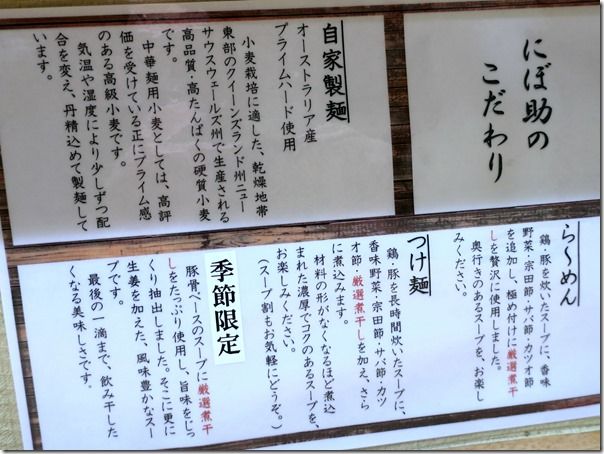 にぼ助の
こだわり
自家製麺
オーストラリア産
プライムハード使用
小麦栽培に適した、乾燥地帯
東部のクイーンズランド州ニュー
サウスウェールズ州で生産される
高品質・高たんぱくの硬質小麦
です。
中華麺用小麦としては、高評
価を受けている正にプライム感
のある高級小麦です。
気温や湿度により少しずつ配
合を変え、丹精込めて製麺して
います。
らーめん
鶏・豚を炊いたスープに、香味
野菜・宗田節・サバ節・カツオ節
を追加し、極め付けに厳選煮干
しを贅沢に使用しました。
奥行きのあるスープを、お楽し
みください。
つけ麺
鶏・豚を長時間炊いたスープに、
香味野菜・宗田節・サバ節・カツ
オ節・厳選煮干しを加え、さら
に煮込みます。
材料の形がなくなるほど煮込
まれた濃厚でコクのあるスープを、
お楽しみください。
(スープ割もお気軽にどうぞ。)
季節限定
豚骨ベースのスープに厳選煮干
しをたっぷり使用し、旨味をじっ
くり抽出しました。そこに更に
生姜を加えた、風味豊かなスー
プです。
最後の一滴まで、飲み干した
くなる美味しさです。